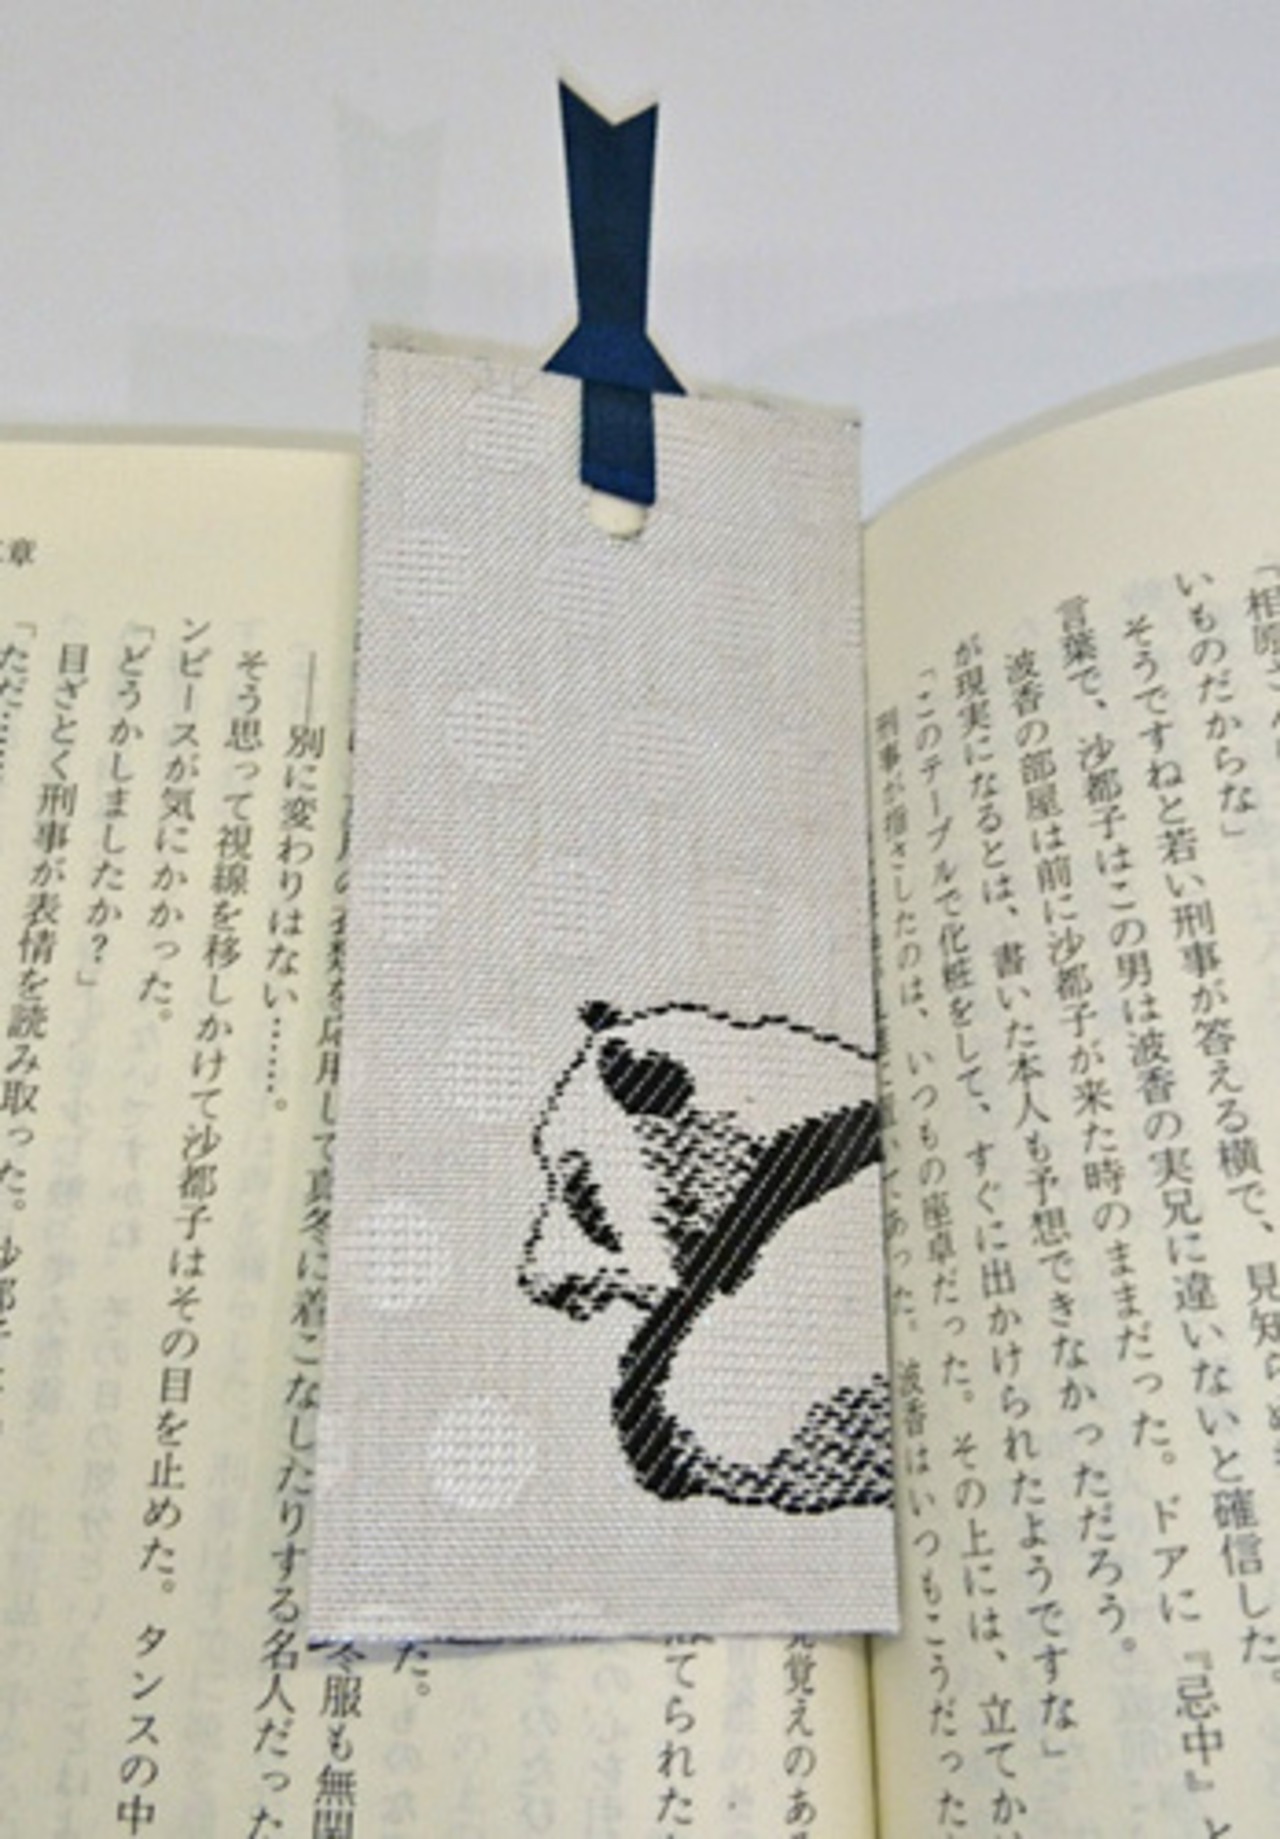 「相原さん
いものだからな」
そうですねと若い刑事が答える横で、見知らぬ
言葉で、沙都子はこの男は波香の実兄に違いないと確信した。
波香の部屋は前に沙都子が来た時のままだった。ドアに『忌中』と
が現実になるとは、書いた本人も予想できなかっただろう。
「このテーブルで化粧をして、すぐに出かけられたようですな」
刑事が指さしたのは、いつもの座卓だった。その上には、立てか
てあった。波香はいつもこうだった
覚えのある
てられた
た。
冬服も無関
を応用して真冬に着こなしたりする名人だった
――別に変わりはない……。
そう思って視線を移しかけて沙都子はその目を止めた。タンスの中
ンピースが気にかかった。
「どうかしましたか?」
目ざとく刑事が表情を読み取った。沙都子
「ただ……
章